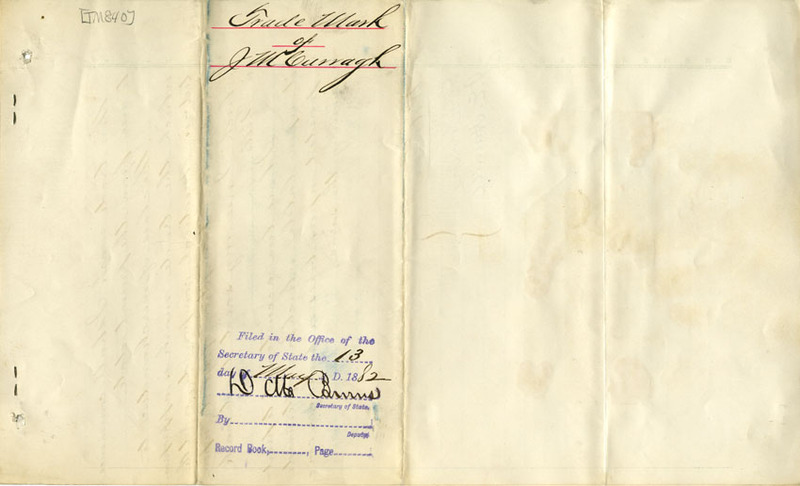 [TM840]
Trade Mark
of
J McCurragh
Filed in the Office of the
Secretary of State the 13
day of May A. D. 1882
D M Burns
Secretary of State.
By
Deputy
Record Book, , Page